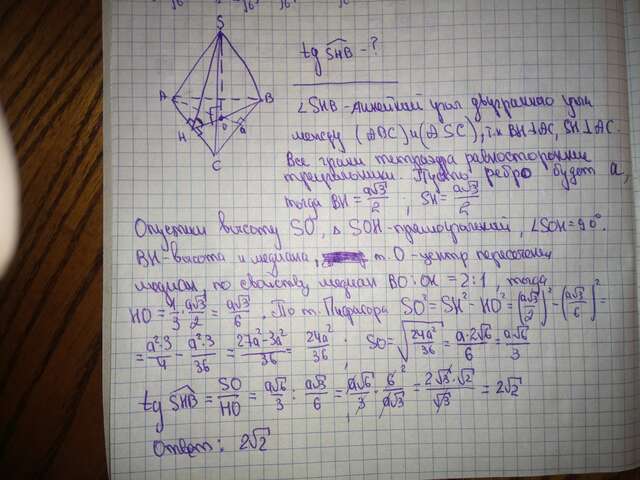 S
A
B
H
O
a
C
tg SHB - ?
∠SHB - линейный угол двугранного угла
между (ABC) и (ASC), т.к BH⊥AC, SH⊥AC.
Все грани тетраэдра равносторонние
треугольники. Пусть ребро будет a,
тогда BH = a√3/2 ; SH = a√3/2
Опустим высоту SO, △ SOH - прямоугольный, ∠SOH = 90°.
BH - высота и медиана, т. O - центр пересечения
медиан, по свойству медиан BO : OH = 2 : 1, тогда
HO = 1/3 · a√3/2 = a√3/6 . По т. Пифагора SO² = SH² - HO² = (a√3/2)² - (a√3/6)² =
= a²·3/4 - a²·3/36 = 27a² - 3a²/36 = 24a²/36 ; SO = √24a²/36 = a·2√6/6 = a√6/3
tg SHB = SO/HO = a√6/3 : a√3/6 = a√6/3 · 6²/a√3 = 2√3·√2/√3 = 2√2
Ответ: 2√2